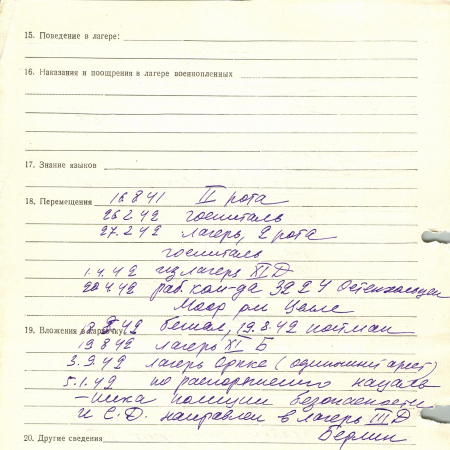 15. Поведение в лагере:
16. Наказания и поощрения в лагере военнопленных
17. Знание языков
18. Перемещения 16 8 41 II рота
26 2 42 госпиталь
27. 2 42 лагерь, 2 рота
госпиталь
1. 4. 42 из лагеря XI Д
20 4. 42 раб ком-да 3224
Моор
19. Вложения в карточку 42 бежал, 19. 8. 42 пойман
19 8 42 лагерь XI Б
3. 9. 42 лагерь (одиночный арест)
5. 1. 42 по распоряжению началь
-ника полиции безопасности
и С. Д. направлен в лагерь III Д
20. Другие сведения Берлин